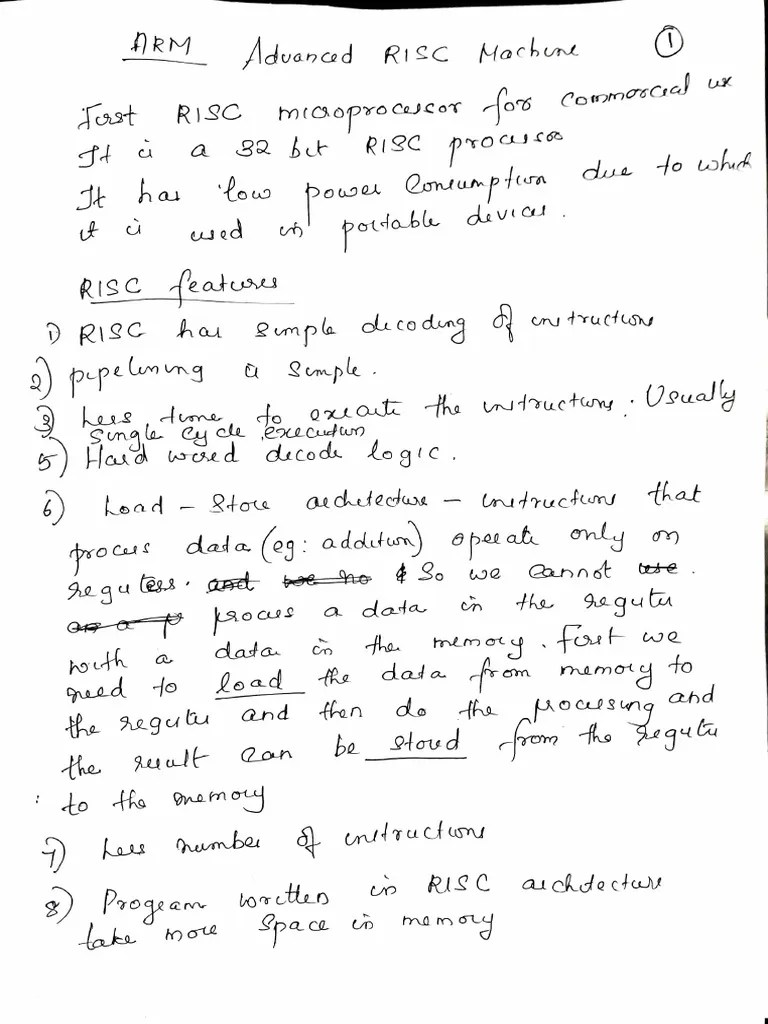 ARM Advanced RISC Machine 1
First RISC microprocessor for commercial use
It is a 32 bit RISC processor
It has low power consumption due to which
it is used in portable devices.
RISC features
1) RISC has simple decoding of instructions
2) pipelining is simple.
3) Less time to execute the instructions. Usually
single cycle execution
5) Hard wired decode logic.
6) Load - Store architecture - instructions that
process data (eg: addition) operate only on
registers. and we no & So we cannot use.
process a data in the register
with a data in the memory. First we
need to load the data from memory to
the register and then do the processing and
the result can be stored from the register
: to the memory
7) Less number of instructions
8) Program written in RISC architecture
take more space in memory